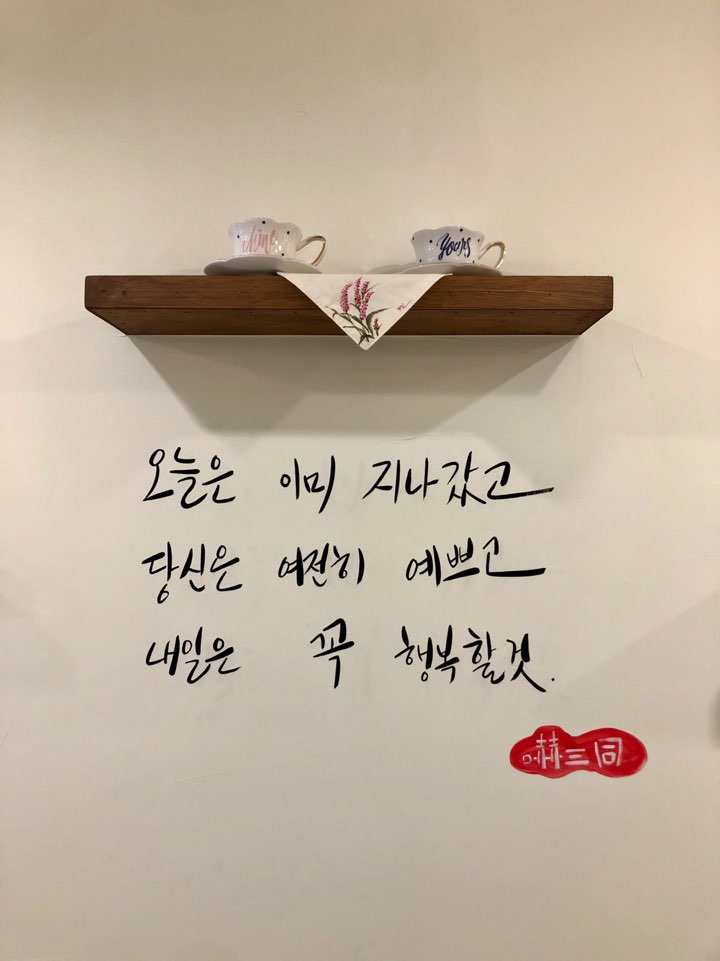 Mine
Yours
오늘은 이미 지나갔고
당신은 여전히 예쁘고
내일은 꼭 행복할것.
嚇三同